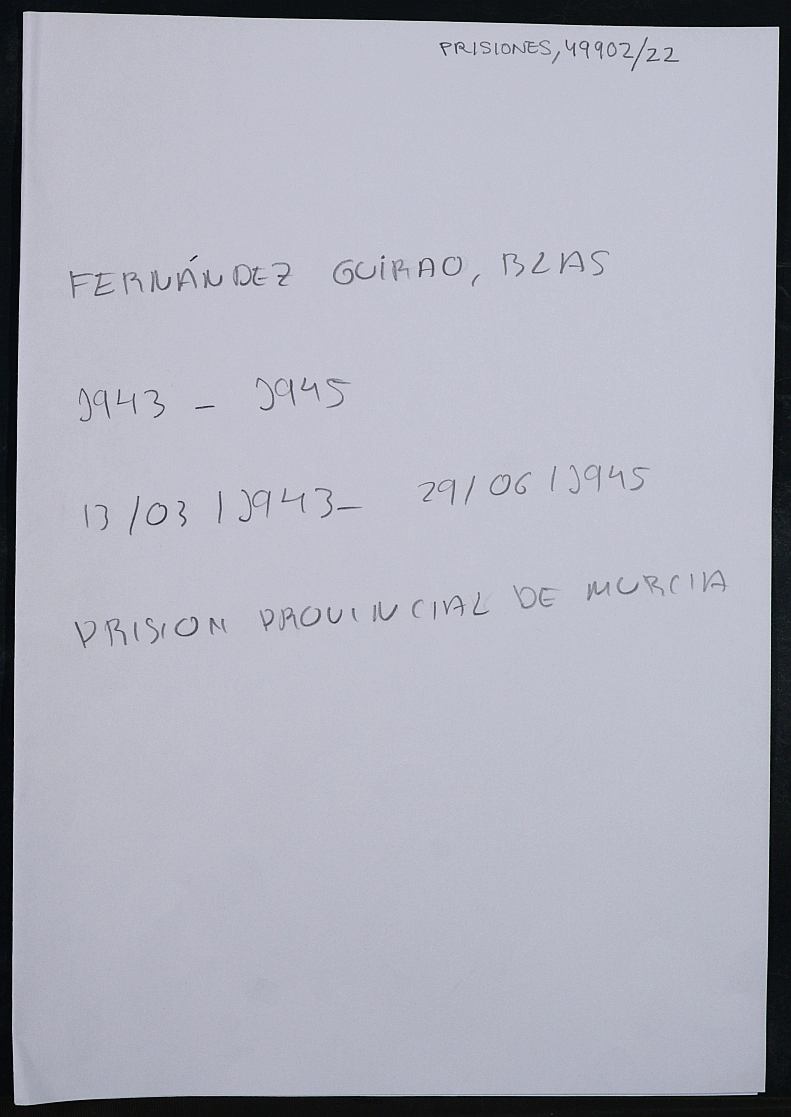 PRISIONES, 49902/22
FERNÁNDEZ GUIRAO, BLAS
1943 - 1945
13/03/1943- 29/06/1945
PRISION PROVINCIAL DE MURCIA